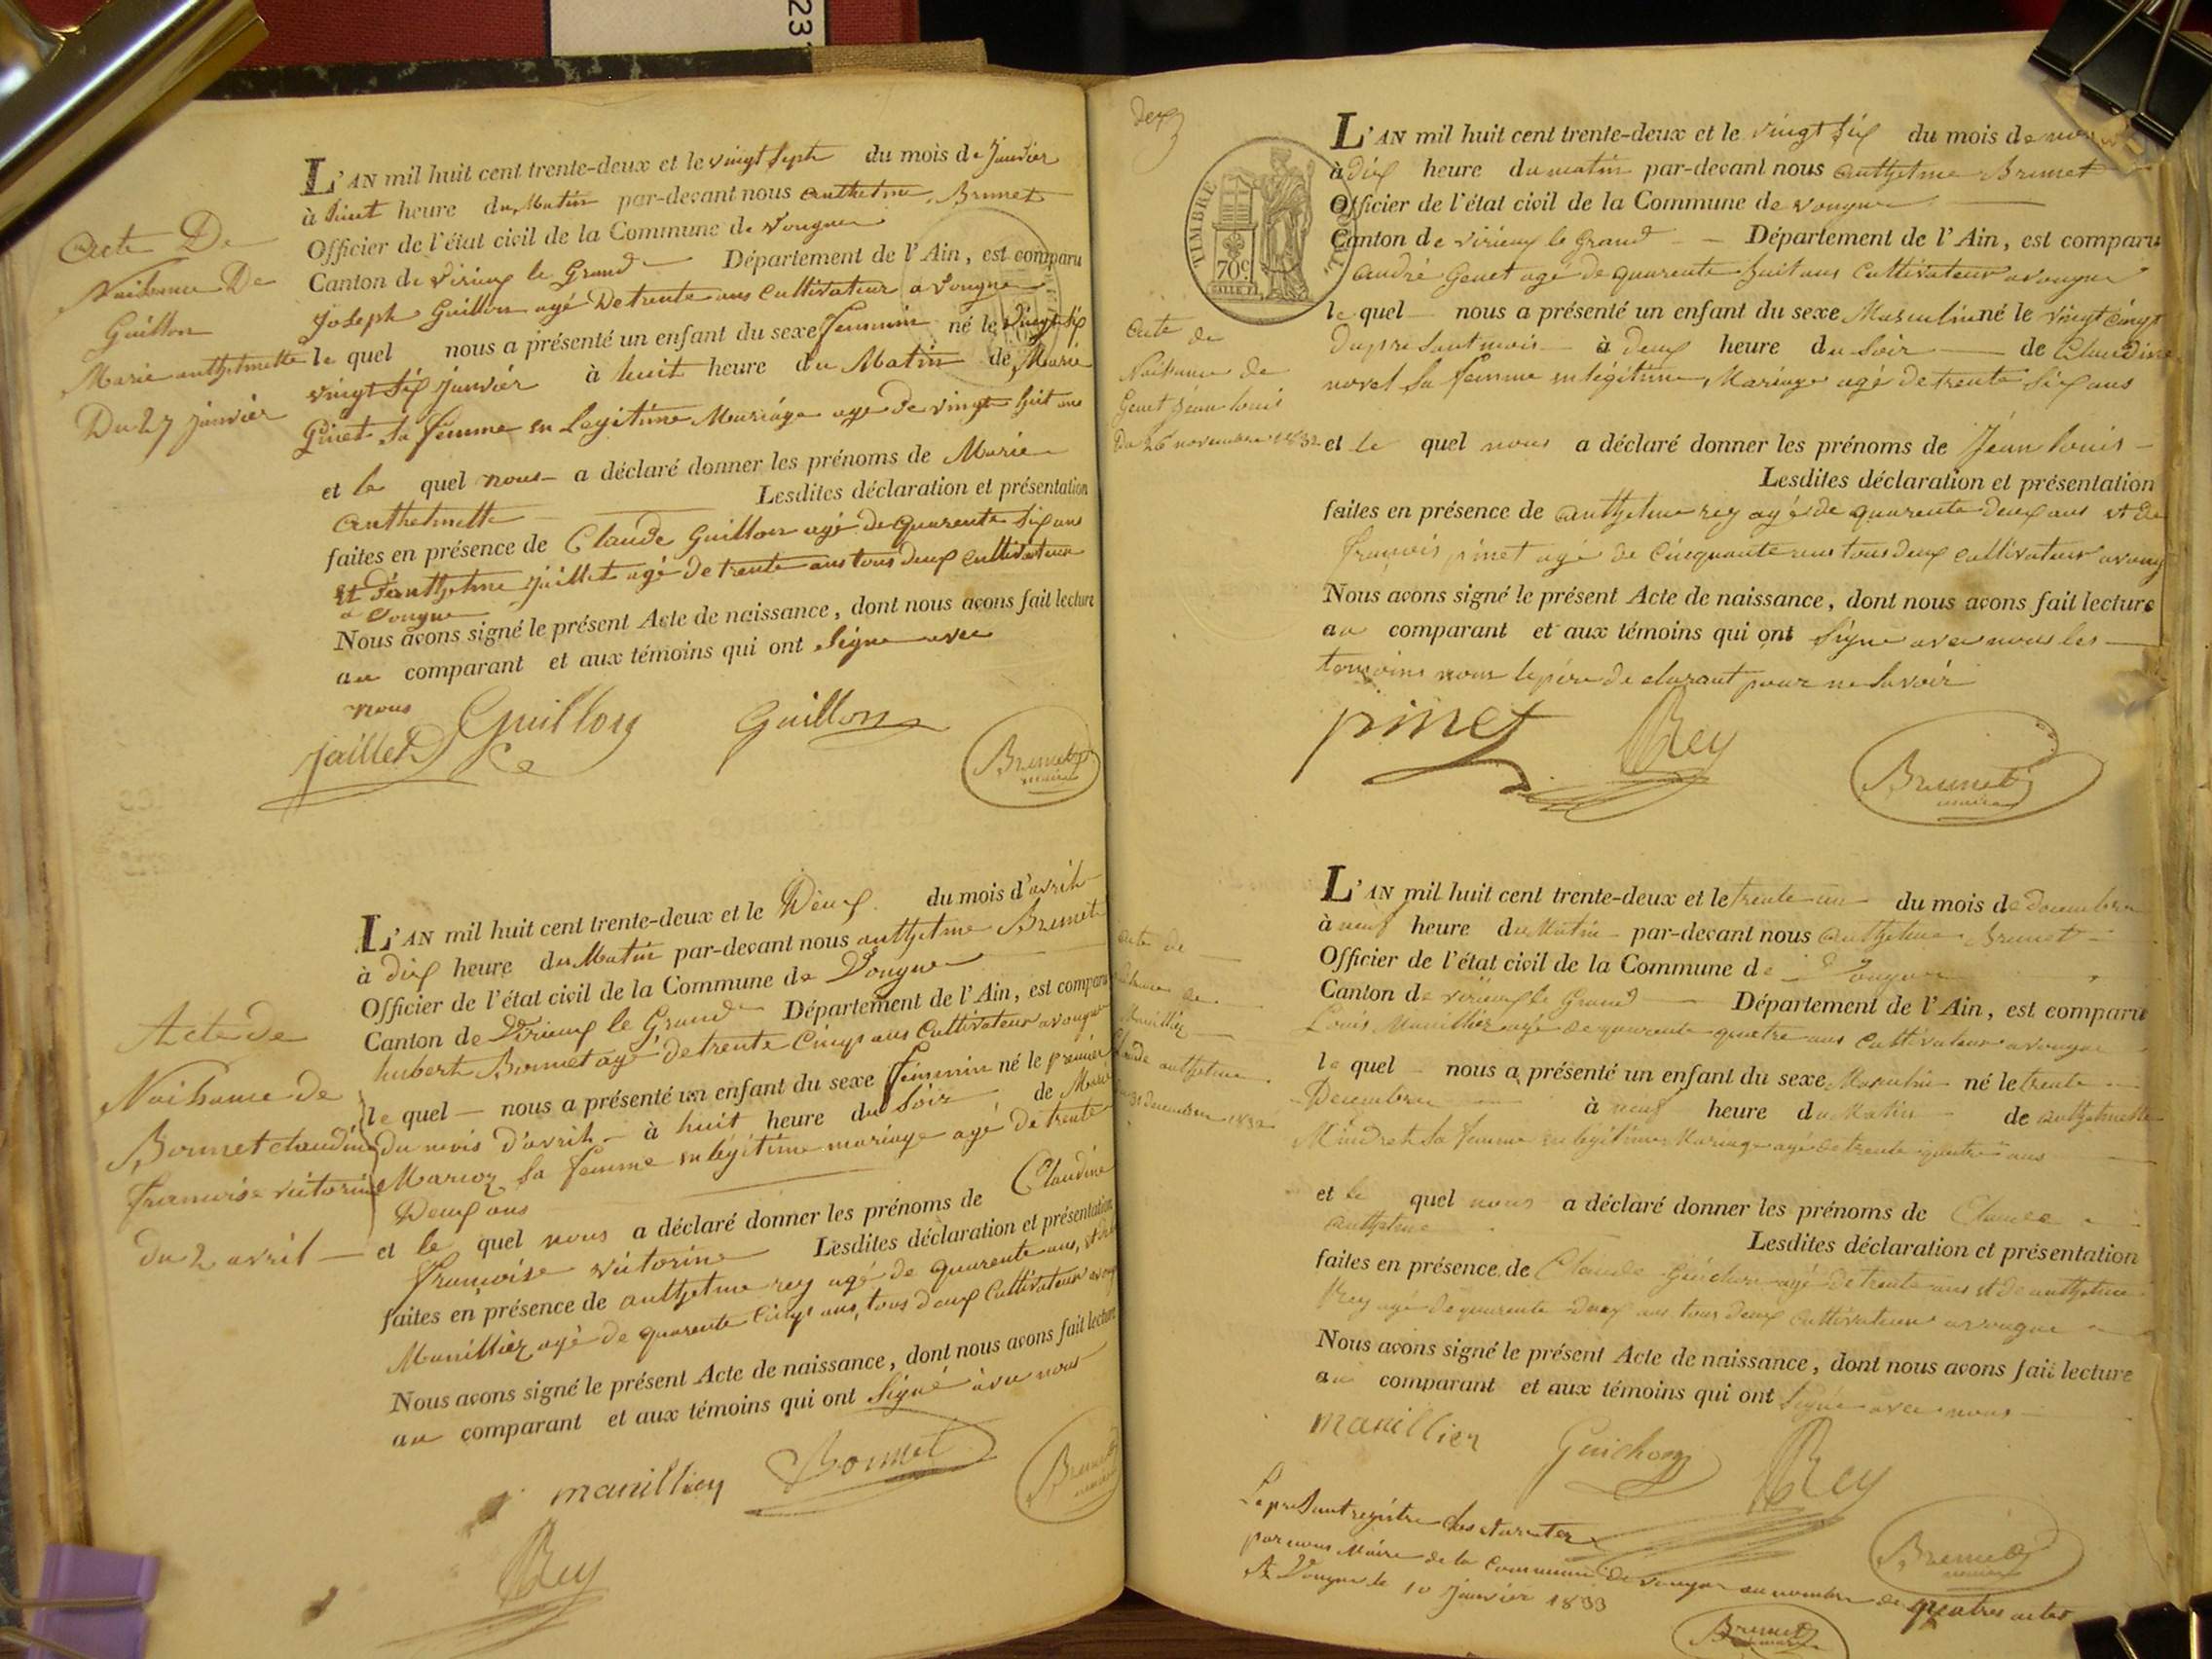 23
L'AN mil huit cent trente-deux et le vingt sept du mois de Janvier
à huit heure du Matin par-devant nous anthelme Brunet
Officier de l'état civil de la Commune de vongne
Canton de virieux le Grand Département de l'Ain, est comparu
Joseph Guillon agé De trente ans Cultivateur a vongne
le quel nous a présenté un enfant du sexe feminin né le vingt six
vingt six janvier à huit heure du Matin de Marie
Ginet sa femme en Legitime Mariage agé de vingt huit ans
et le quel nous a déclaré donner les prénoms de Marie
anthelmette Lesdites déclaration et présentation
faites en présence de Claude Guillon agé de quarente six ans
et d'anthelme juillet agé de trente ans tous deux cultivateur
a vongne
Nous avons signé le présent Acte de naissance, dont nous avons fait lecture
au comparant et aux témoins qui ont signe avec
nous
jaillet Guillon Guillon Brunet
maire
Acte De
Naissance De
Guillon
Marie anthelmette
Du 27 janvier
L'AN mil huit cent trente-deux et le Deux du mois d'avril
à dix heure du Matin par-devant nous anthelme Brunet
Officier de l'état civil de la Commune de Vongne
Canton de Virieux le Grand Département de l'Ain, est comparu
hubert Bonnet agé de trente Cinq ans Cultivateur a vongne
le quel nous a présenté un enfant du sexe feminin né le premier
du mois d'avril à huit heure du Soir de Marie
Marioz sa femme en légitime mariage agé de trente
Deux ans
et le quel nous a déclaré donner les prénoms de Claudine
françoise victorine Lesdites déclaration et présentation
faites en présence de anthelme rey agé de quarente ans, et de
Manillier agé de quarente Cinq ans, tous deux Cultivateur a vong
Nous avons signé le présent Acte de naissance, dont nous avons fait lecture
au comparant et aux témoins qui ont signé avec nous
manillier Bonnet Brunet
Rey
Acte de
Naissance de
Bonnet claudine
francoise victorine
du 2 avril
deux
TIMBRE ROYAL
70c
L'AN mil huit cent trente-deux et le vingt six du mois de nov
à dix heure du matin par-devant nous anthelme Brunet
Officier de l'état civil de la Commune de vongne
Canton de virieux le Grand Département de l'Ain, est comparu
andré Genet agé de quarente huit ans Cultivateur a vongne
le quel nous a présenté un enfant du sexe Masculin né le vingt cinq
du présant mois à deux heure du Soir de Claudine
novel sa femme en légitime Mariage agé de trente six ans
et le quel nous a déclaré donner les prénoms de Jean louis
Lesdites déclaration et présentation
faites en présence de anthelme rey agé de quarente deux ans et de
françois pinet agé de Cinquante ans tous deux cultivateur a vong
Nous avons signé le présent Acte de naissance, dont nous avons fait lecture
au comparant et aux témoins qui ont signe avec nous les
temoins non le père declarant pour ne savoir
pinet Rey Brunet
maire
acte de
Naissance de
Genet jean louis
Du 26 novembre 1832
L'AN mil huit cent trente-deux et le trente un du mois de decembre
à neuf heure du Matin par-devant nous anthelme Brunet
Officier de l'état civil de la Commune de Vongne
Canton de virieux le Grand Département de l'Ain, est comparu
Louis Manillier agé de quarente quatre ans Cultivateur a vongne
le quel nous a présenté un enfant du sexe Masculin né le trente
Decembre à neuf heure du Matin de anthelmette
sa femme en légitime Mariage agé de trente quatre ans
et le quel nous a déclaré donner les prénoms de Claude
anthelme Lesdites déclaration et présentation
faites en présence de Claude Guichon agé de trente ans et de anthelme
Rey agé de quarente deux ans tous deux cultivateur a vongne
Nous avons signé le présent Acte de naissance, dont nous avons fait lecture
au comparant et aux témoins qui ont signé avec nous
manillier Guichon Rey Brunet
maire
acte de
Manillier
Claude anthelme
31 decembre 1832
Le présant registre
par nous Maire de la Commune de vongne au nombre de quatres actes
A Vongne le 10 janvier 1833
Brunet